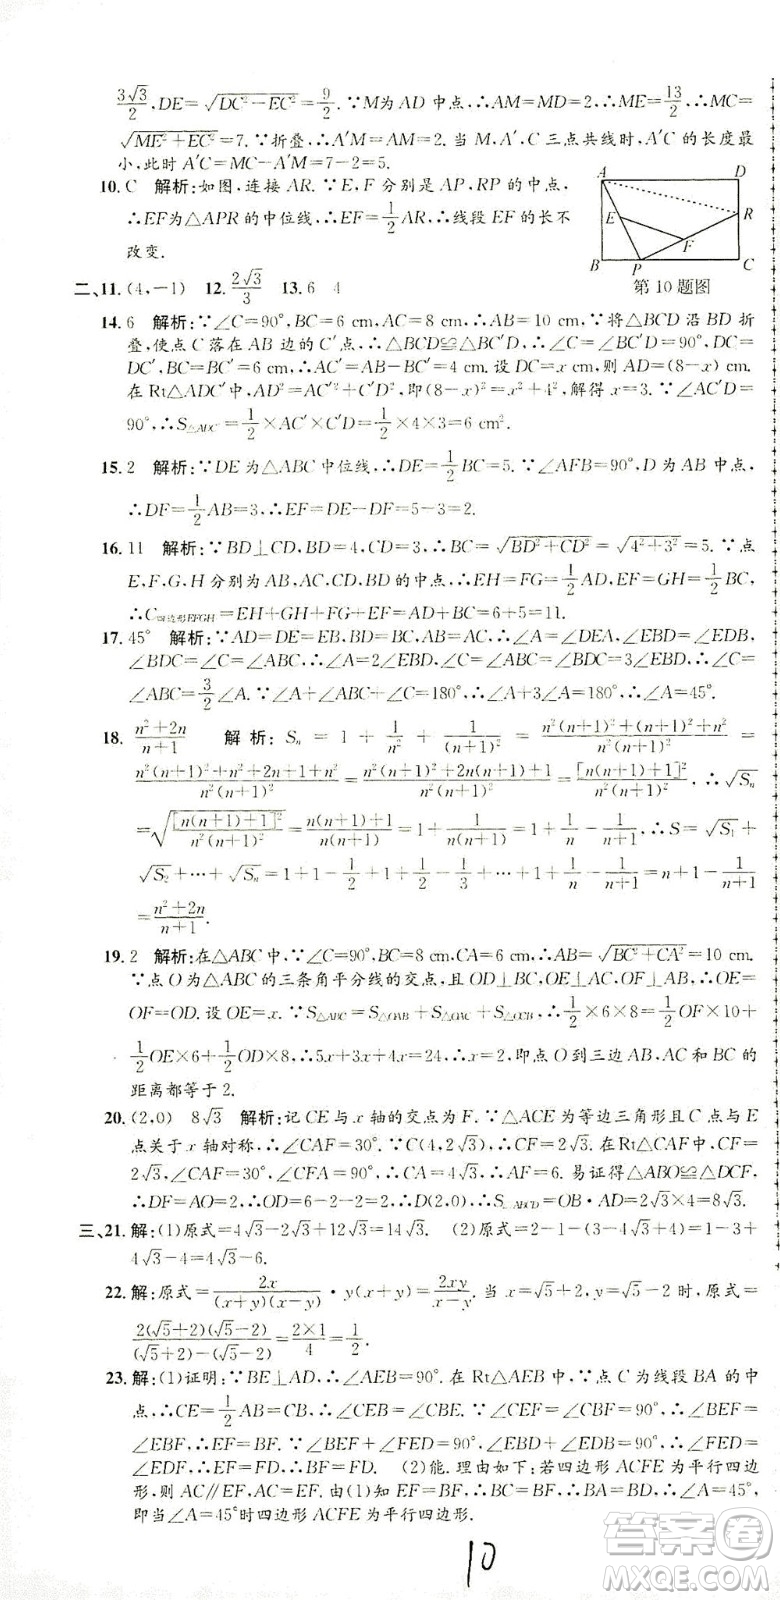 3√3/2, DE=√(DC²-EC²)=9/2. ∵M为AD中点,∴AM=MD=2,∴ME=13/2,∴MC=
√(ME²+EC²)=7. ∵折叠,∴A′M=AM=2. 当M,A′,C三点共线时,A′C的长度最
小,此时A′C=MC-A′M=7-2=5.
10. C 解析:如图,连接AR. ∵E,F分别是AP,RP的中点,
∴EF为△APR的中位线,∴EF=1/2AR,∴线段EF的长不
改变.
A D E R F B P C
第10题图
二、11. (4,-1) 12. 2√3/3 13. 6 4
14. 6 解析:∵∠C=90°,BC=6 cm,AC=8 cm,∴AB=10 cm. ∵将△BCD沿BD折
叠,使点C落在AB边的C′点,∴△BCD≌△BC′D,∴∠C=∠BC′D=90°,DC=
DC′,BC=BC′=6 cm,∴AC′=AB-BC′=4 cm. 设DC=x cm,则AD=(8-x) cm.
在Rt△ADC′中,AD²=AC′²+C′D²,即(8-x)²=x²+4²,解得x=3. ∵∠AC′D=
90°,∴S△ADC′=1/2×AC′×C′D=1/2×4×3=6 cm².
15. 2 解析:∵DE为△ABC中位线,∴DE=1/2BC=5. ∵∠AFB=90°,D为AB中点,
∴DF=1/2AB=3,∴EF=DE-DF=5-3=2.
16. 11 解析:∵BD⊥CD,BD=4,CD=3,∴BC=√(BD²+CD²)=√(4²+3²)=5. ∵点
E,F,G,H分别为AB,AC,CD,BD的中点,∴EH=FG=1/2AD,EF=GH=1/2BC,
∴C四边形EFGH=EH+GH+FG+EF=AD+BC=6+5=11.
17. 45° 解析:∵AD=DE=EB,BD=BC,AB=AC,∴∠A=∠DEA,∠EBD=∠EDB,
∠BDC=∠C=∠ABC,∴∠A=2∠EBD,∠C=∠A+∠EBD=3∠EBD,∴∠C=
∠ABC=3/2∠A. ∵∠A+∠ABC+∠C=180°,∴∠A+3∠A=180°,∴∠A=45°.
18. (n²+2n)/(n+1) 解析:Sₙ=1+1/n²+1/(n+1)²=[n²(n+1)²+(n+1)²+n²]/[n²(n+1)²]=
[n²(n+1)²+n²+2n+1+n²]/[n²(n+1)²]=[n²(n+1)²+2n(n+1)+1]/[n²(n+1)²]=[n(n+1)+1]²/[n²(n+1)²]. ∴√Sₙ
=√([n(n+1)+1]²/[n²(n+1)²])=[n(n+1)+1]/[n(n+1)]=1+1/[n(n+1)]=1+1/n-1/(n+1),∴S=√S₁+
√S₂+⋯+√Sₙ=1+1-1/2+1+1/2-1/3+⋯+1+1/n-1/(n+1)=n+1-1/(n+1)
=(n²+2n)/(n+1).
19. 2 解析:在△ABC中,∵∠C=90°,BC=8 cm,CA=6 cm,∴AB=√(BC²+CA²)=10 cm.
∵点O为△ABC的三条角平分线的交点,且OD⊥BC,OE⊥AC,OF⊥AB,∴OE=
OF=OD. 设OE=x. ∵S△ABC=S△OAB+S△OAC+S△OCB,∴1/2×6×8=1/2OF×10+
1/2OE×6+1/2OD×8,∴5x+3x+4x=24,∴x=2,即点O到三边AB,AC和BC的
距离都等于2.
20. (2,0) 8√3 解析:记CE与x轴的交点为F. ∵△ACE为等边三角形且C与E
点关于x轴对称,∴∠CAF=30°. ∵C(4,2√3),∴CF=2√3. 在Rt△CAF中,CF=
2√3,∠CAF=30°,∠CFA=90°,∴CA=4√3,∴AF=6. 易证得△OAB≌△DCF,
∴DF=AO=2,∴OD=6-2-2=2,∴D(2,0),∴S□ABCD=OB·AD=2√3×4=8√3.
三、21. 解:(1)原式=4√3-2√3+12√3=14√3. (2)原式=2-1-(3-4√3+4)=1-3+
4√3-4=4√3-6.
22. 解:原式=2x/[(x+y)(x-y)]·y(x+y)=2xy/(x-y). 当x=√5+2,y=√5-2时,原式=
2(√5+2)(√5-2)/[(√5+2)-(√5-2)]=2×1/4=1/2.
23. 解:(1)证明:∵BE⊥AD,∴∠AEB=90°. 在Rt△AEB中,∵点C为线段BA的中
点,∴CE=1/2AB=CB,∴∠CEB=∠CBE. ∵∠CEF=∠CBF=90°,∴∠BEF=
∠EBF,∴EF=BF. ∵∠BEF+∠FED=90°,∠EBD+∠EDB=90°,∴∠FED=
∠EDF,∴EF=FD,∴BF=FD. (2)能. 理由如下:若四边形ACFE为平行四边
形,则AC∥EF,AC=EF. 由(1)知BC=AC,BF=EF,∴BA=BD,∴∠A=45°,
即当∠A=45°时四边形ACFE为平行四边形.
10
答案圈
MXQE.COM